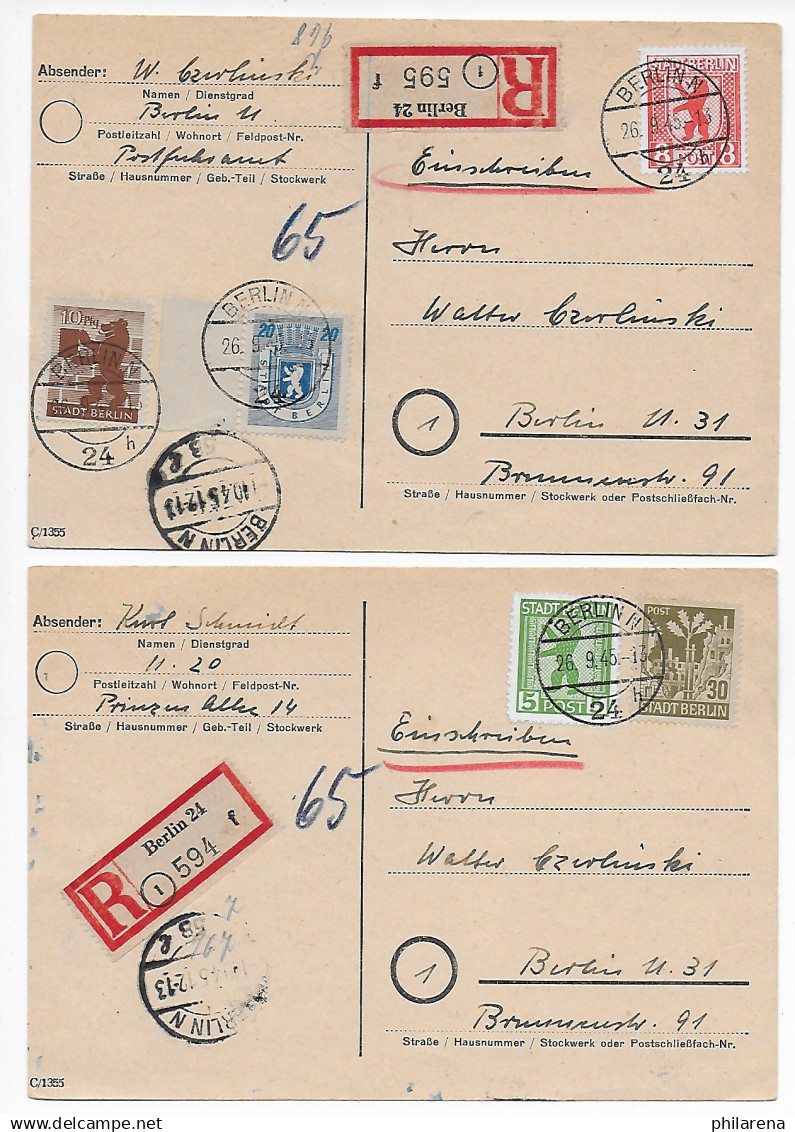 896
Absender: W. Czerlinski
Namen / Dienstgrad
Berlin N.
Postleitzahl / Wohnort / Feldpost-Nr.
Postfuhramt
Straße / Hausnummer / Geb.-Teil / Stockwerk
R
Berlin 24
1
595 f
STADT BERLIN
8 POST 8
BERLIN N
26. 9.45.-13
24 h
Einschreiben
65
Herrn
Walter Czerlinski
10 Pfg
STADT BERLIN
BERLIN N
24 h
20 20
BERLIN
BERLIN N
26. 9.45
24
1
Berlin N. 31
Brunnenstr. 91
Straße / Hausnummer / Stockwerk oder Postschließfach-Nr.
1.10.45 12-13
BERLIN N
C/1355
Absender: Kurt Schmidt
Namen / Dienstgrad
N. 20
Postleitzahl / Wohnort / Feldpost-Nr.
Prinzen Allee 14
Straße / Hausnummer / Geb.-Teil / Stockwerk
STADT BERLIN
5 POST
BERLIN N
26. 9.45.-13
24 h
POST
30
STADT BERLIN
Einschreiben
65
Herrn
Walter Czerlinski
R
Berlin 24
1
594 f
7
767
45 12-13
BERLIN N
1
Berlin N. 31
Brunnenstr. 91
Straße / Hausnummer / Stockwerk oder Postschließfach-Nr.
C/1355
philarena.com